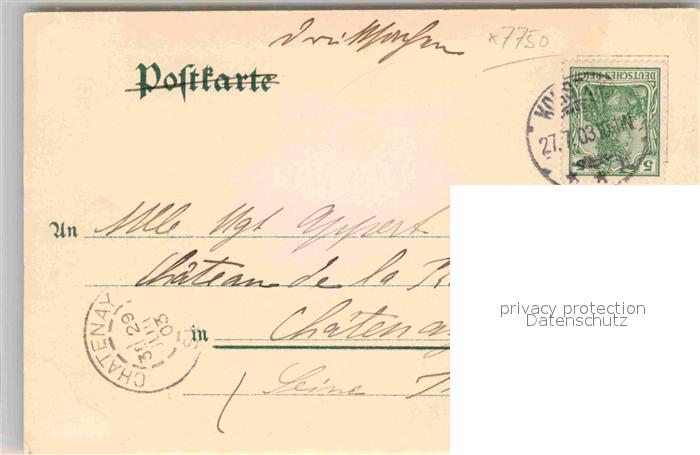 Drucksachen x7750
Postkarte
DEUTSCHES REICH
5
27.7.03
An Mlle Mgt Appert
Château de la
CHATENAY
29
03
in Châtenay
Seine
privacy protection
Datenschutz